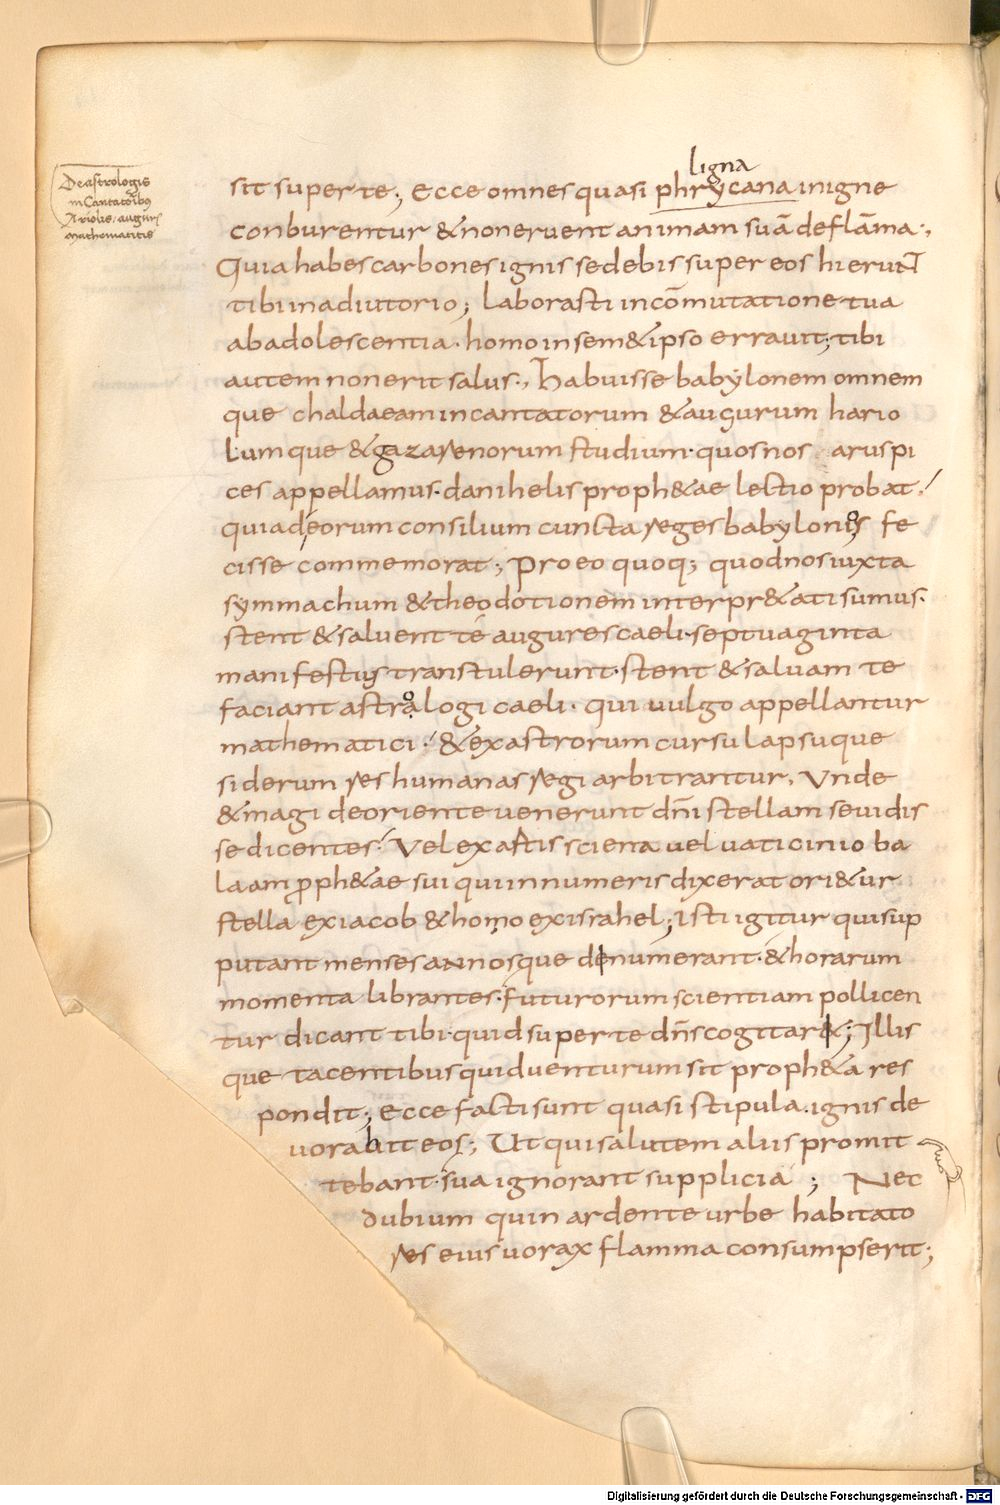 De astrologis
inCantatorib9
Ariolis, augurs
mathematicis
ligna
sit super te; Ecce omnes quasi phrycana in igne
conburentur & non eruent animam suā de flāma.,
Quia habes carbones ignis sedebis super eos hi erunt
tibi in adiutorio; laborasti in cōmutatione tua
ab adolescentia. homo in sem&ipso errauit; tibi
autem non erit salus., habuisse babylonem omnem
que chaldaeam incantatorum & augurum hario
lumque & gazarenorum studium. quos nos aruspi
ces appellamus. danihelis proph&ae lectio probat!
quia deorum consilium cuncta reges babylonis fe
cisse commemorat; Pro eo quoq; quod nos iuxta
symmachum & theodotionem interpr&ati sumus.
stent & saluent te augures caeli. septuaginta
manifestius transtulerunt. stent & saluam te
faciant astralogi caeli. qui uulgo appellantur
mathematici! & ex astrorum cursu lapsuque
siderum res humanas regi arbitrantur. Vnde
& magi de oriente uenerunt dn̄i stellam se uidis
se dicentes! Vel ex artis scientia uel uaticinio ba
laam proph&ae sui qui in numeris dixerat ori&ur
stella ex iacob & homo ex israhel; isti igitur qui sup
putant menses annosque denumerant. & horarum
momenta librantes. futurorum scientiam pollicen
tur dicant tibi. quid super te dn̄s cogitar&; Illis
que tacentibus quid uenturum sit proph&a res
pondit; Ecce facti sunt quasi stipula. ignis de
uorabit eos; Ut qui salutem aliis promit
tebant. sua ignorant supplicia; Nec
dubium quin ardente urbe habitato
res eius uorax flamma consumpserit;
Digitalisierung gefördert durch die Deutsche Forschungsgemeinschaft - DFG